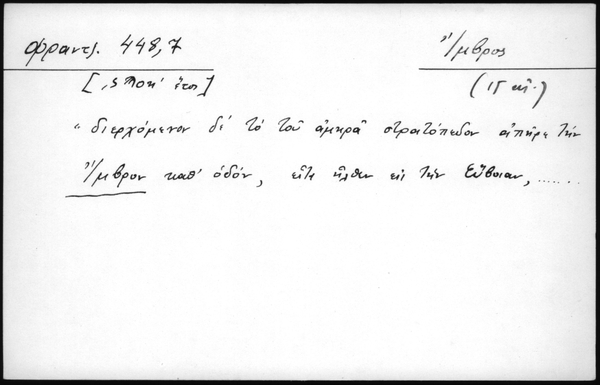 Φραντζ. 448,7
Ἴμβρος
[,ςϡοη' ἔτος]
(ΙΓ κἑ.)
"διερχόμενον δέ τό τοῦ ἀμηρᾶ στρατόπεδον ἀπῆρε τήν
Ἴμβρον καθ' ὁδόν, εἶτα ἦλθεν εἰς τήν Εὔβοιαν, ......